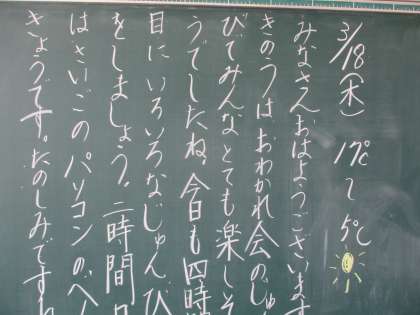 3/18(木) 17℃〜5℃
みなさんおはようございます
きのうはおわかれ会のじゅ
びでみんなとても楽しそ
うでしたね。今日も四時
目にいろいろなじゅんび
をしましょう。二時間
はさいごのパソコンのべん
きょうです。たのしみですね